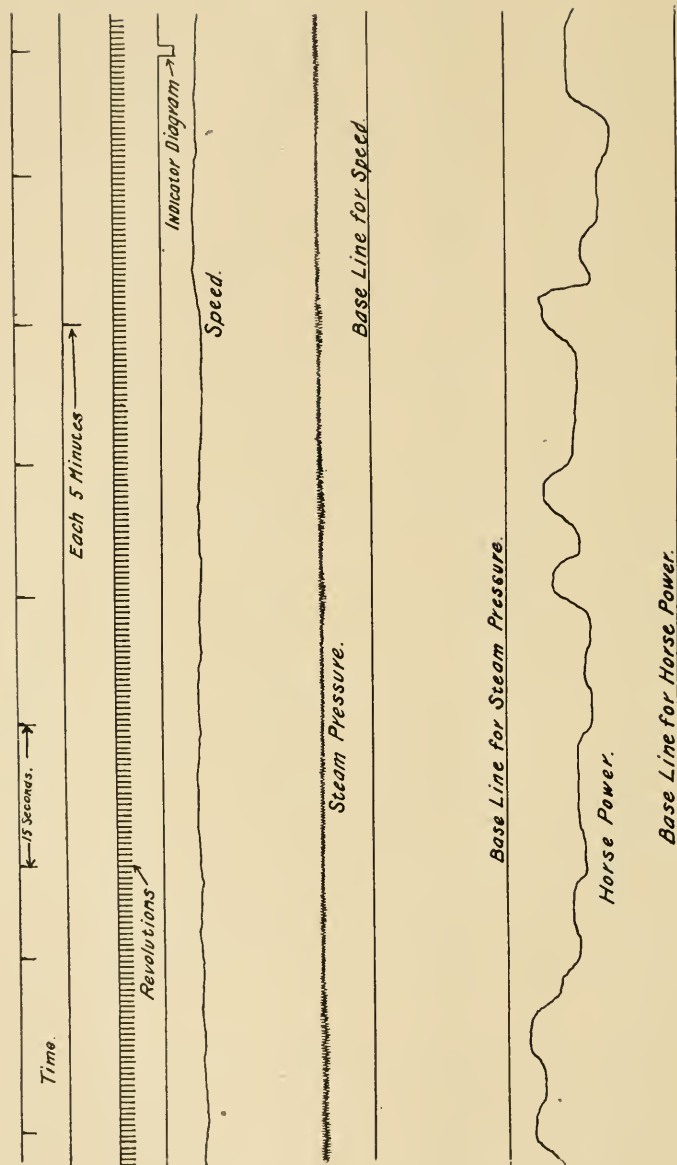 Time.
15 Seconds.
Each 5 Minutes
Revolutions
Indicator Diagram
Speed.
Steam Pressure.
Base Line for Speed.
Base Line for Steam Pressure.
Horse Power.
Base Line for Horse Power.